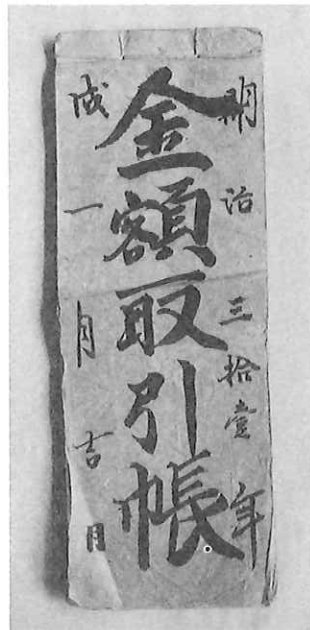 明治三拾壹年
金額取引帳
戌一月吉日